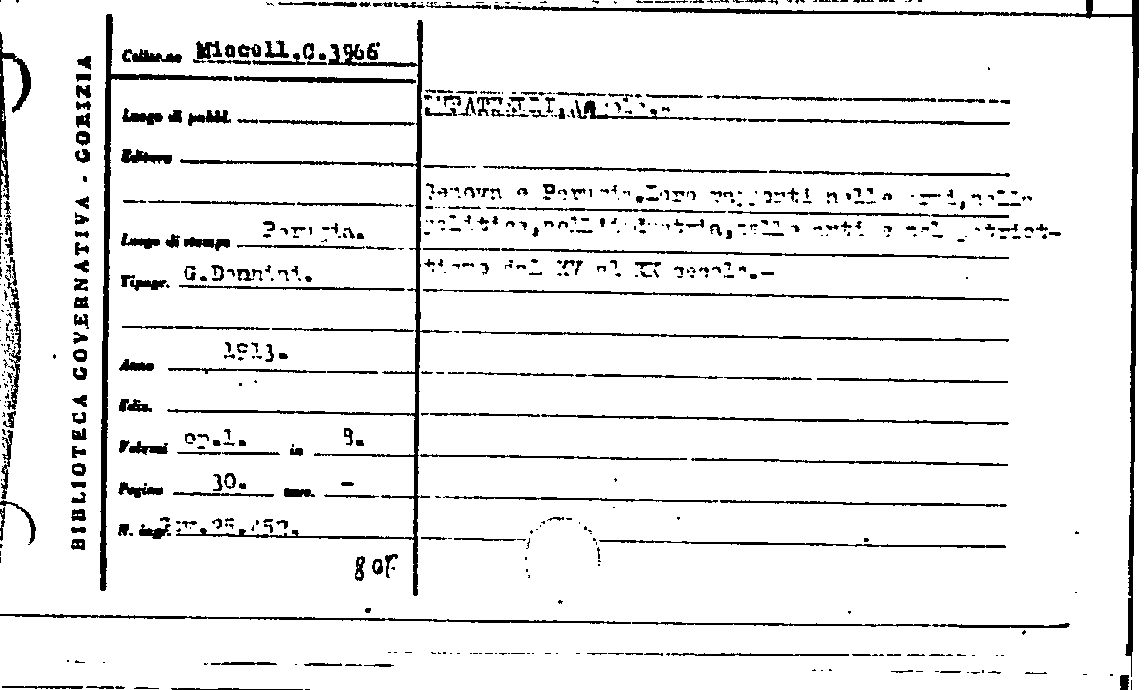 BIBLIOTECA GOVERNATIVA - GORIZIA
Colloc.ne Miscell.C.3966
Luogo di pubbl.
Editore
Genova e Perugia.Loro rapporti nelle armi,nella
politica,nell'industria,nelle arti e nel patriot-
tismo dal XV al XX secolo.—
Luogo di stampa Perugia.
Tipogr. G.Donnini.
Anno 1913.
Ediz.
Volumi op.1. in 8.
Pagine 30. tavv. —
N. ingr.
80F